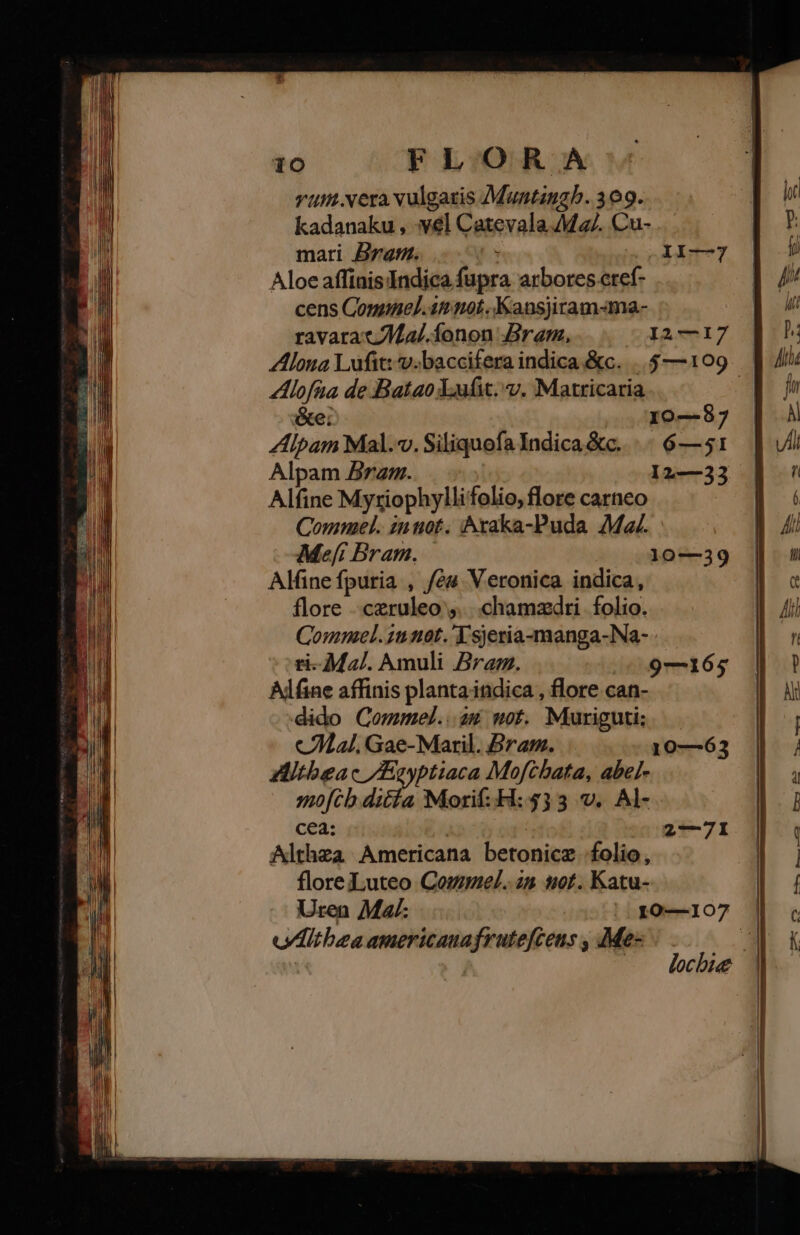 10 FLORA
rum.vera vulgaris Muntingh. 309.
kadanaku, vel Catevala Mal. Cu-
mari Bram. 11—7
Aloe affinis Indica ſupra arbores creſ-
cens Commel. in not. Kansjiram-ma-
ravara Mal. ſonon Bram. 12—17
Alona Luſit: v. baccifera indica &c. 5—109
Aloſna de Batao Luſit. v. Matricaria
&c: 10—87
Alpam Mal. v. Siliquoſa Indica &c. 6—51
Alpam Bram. 12—33
Alſine Myriophylli folio, flore carneo
Commel. in not. Araka-Puda Mal.
Meſi Bram. 10—39
Alſine ſpuria, ſeu Veronica indica,
flore cæruleo, chamædri folio.
Commel. in not. Tsjeria-manga-Na-
ri- Mal. Amuli Bram. 9—165
Alſine affinis planta indica, flore can-
dido Commel. in not. Muriguti:
Mal. Gae-Maril. Bram. 10—63
Althea Ægyptiaca Moſchata, abel-
moſch dicta Moriſ: H: 533 v. Al-
cea: 2—71
Althæa Americana betonicæ folio,
flore Luteo Commel. in not. Katu-
Uren Mal: 10—107
Althea americana fruteſcens, Me-
lochiæ